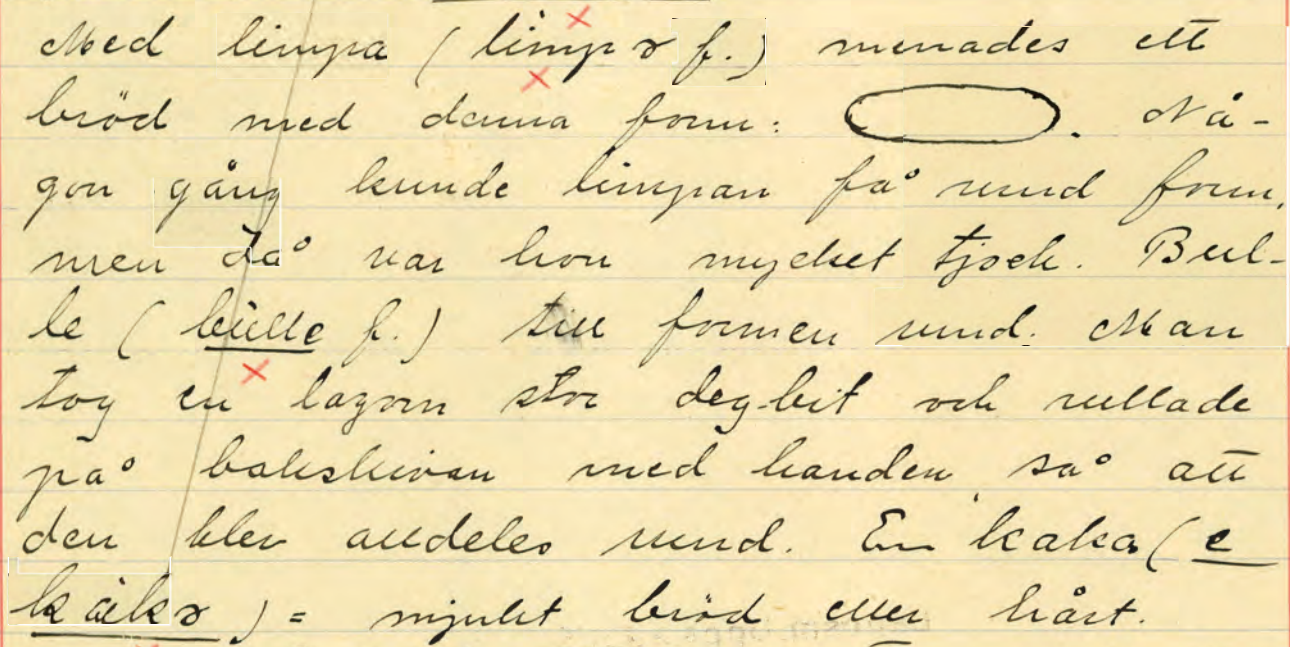 Med limpa (limpɤ f.) menades ett
bröd med denna form: . Nå-
gon gång kunde limpan få rund form,
men då var hon mycket tjock. Bul-
le (bùlle f.) till formen rund. Man
tog en lagom stor degbit och rullade
på bakskivan med handen så att
den blev alldeles rund. En kaka (e
kàkɤ) = mjukt bröd eller hårt.